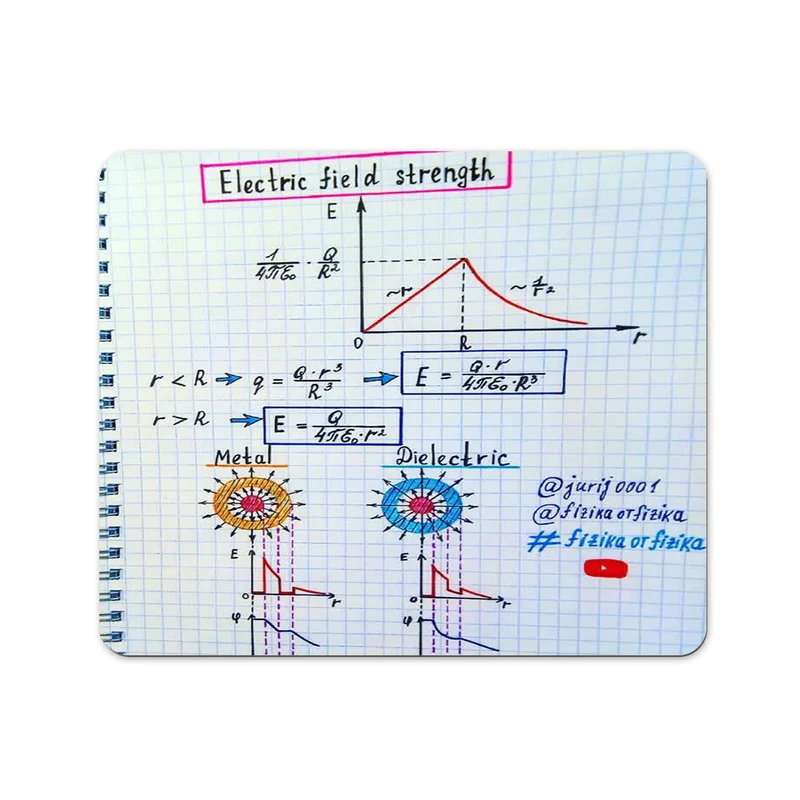 Electric field strength
E
1/4πε₀ · Q/R²
~r
~ 1/r²
0 R r
r < R ⇒ q = Q·r³/R³ ⇒ E = Q·r/4πε₀·R³
r > R ⇒ E = Q/4πε₀·r²
Metal Dielectric
@jurij0001
@fizika от fizika
# fizika от fizika
E E
0 r 0 r
φ φ